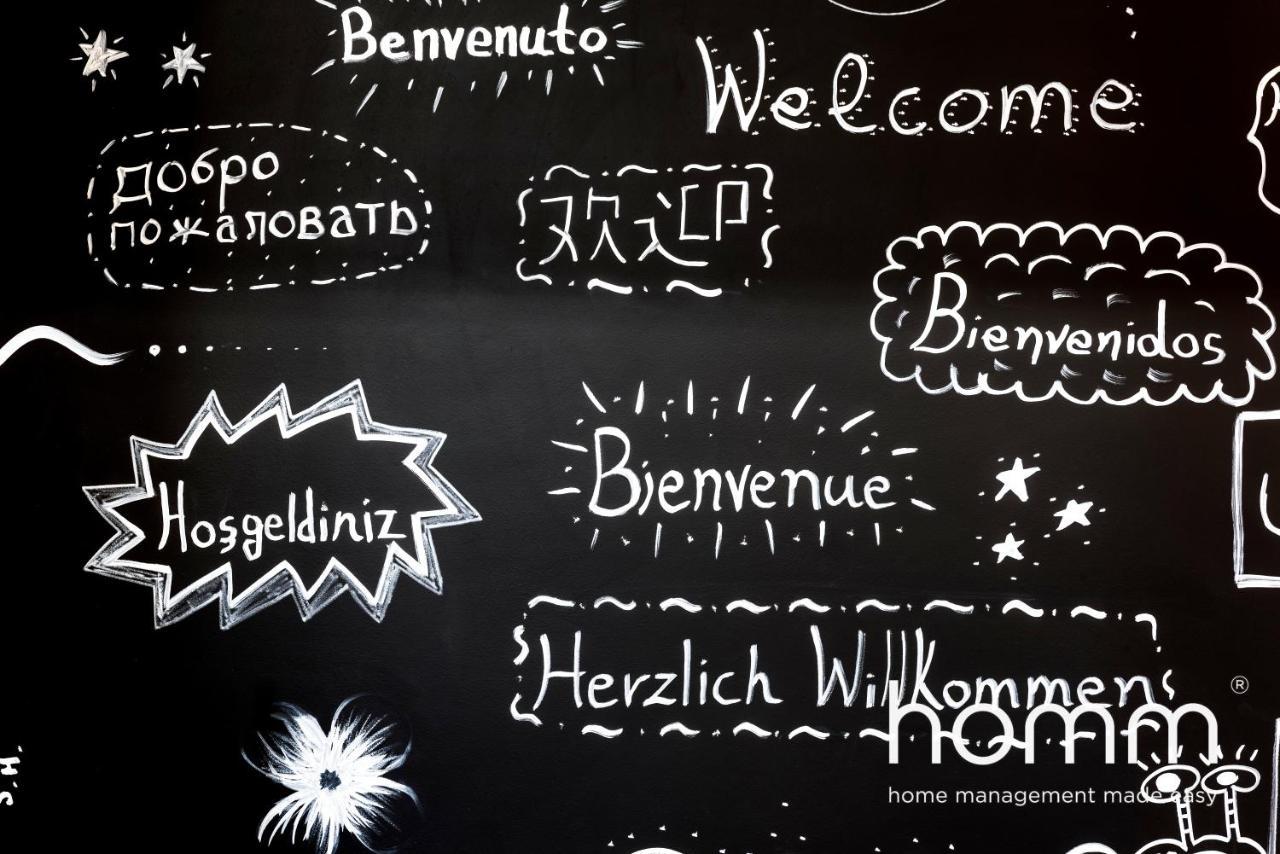 Benvenuto
Welcome
Добро
пожаловать
欢迎
Bienvenidos
Hoşgeldiniz
Bienvenue
Herzlich Willkommen
homm ®
home management made easy